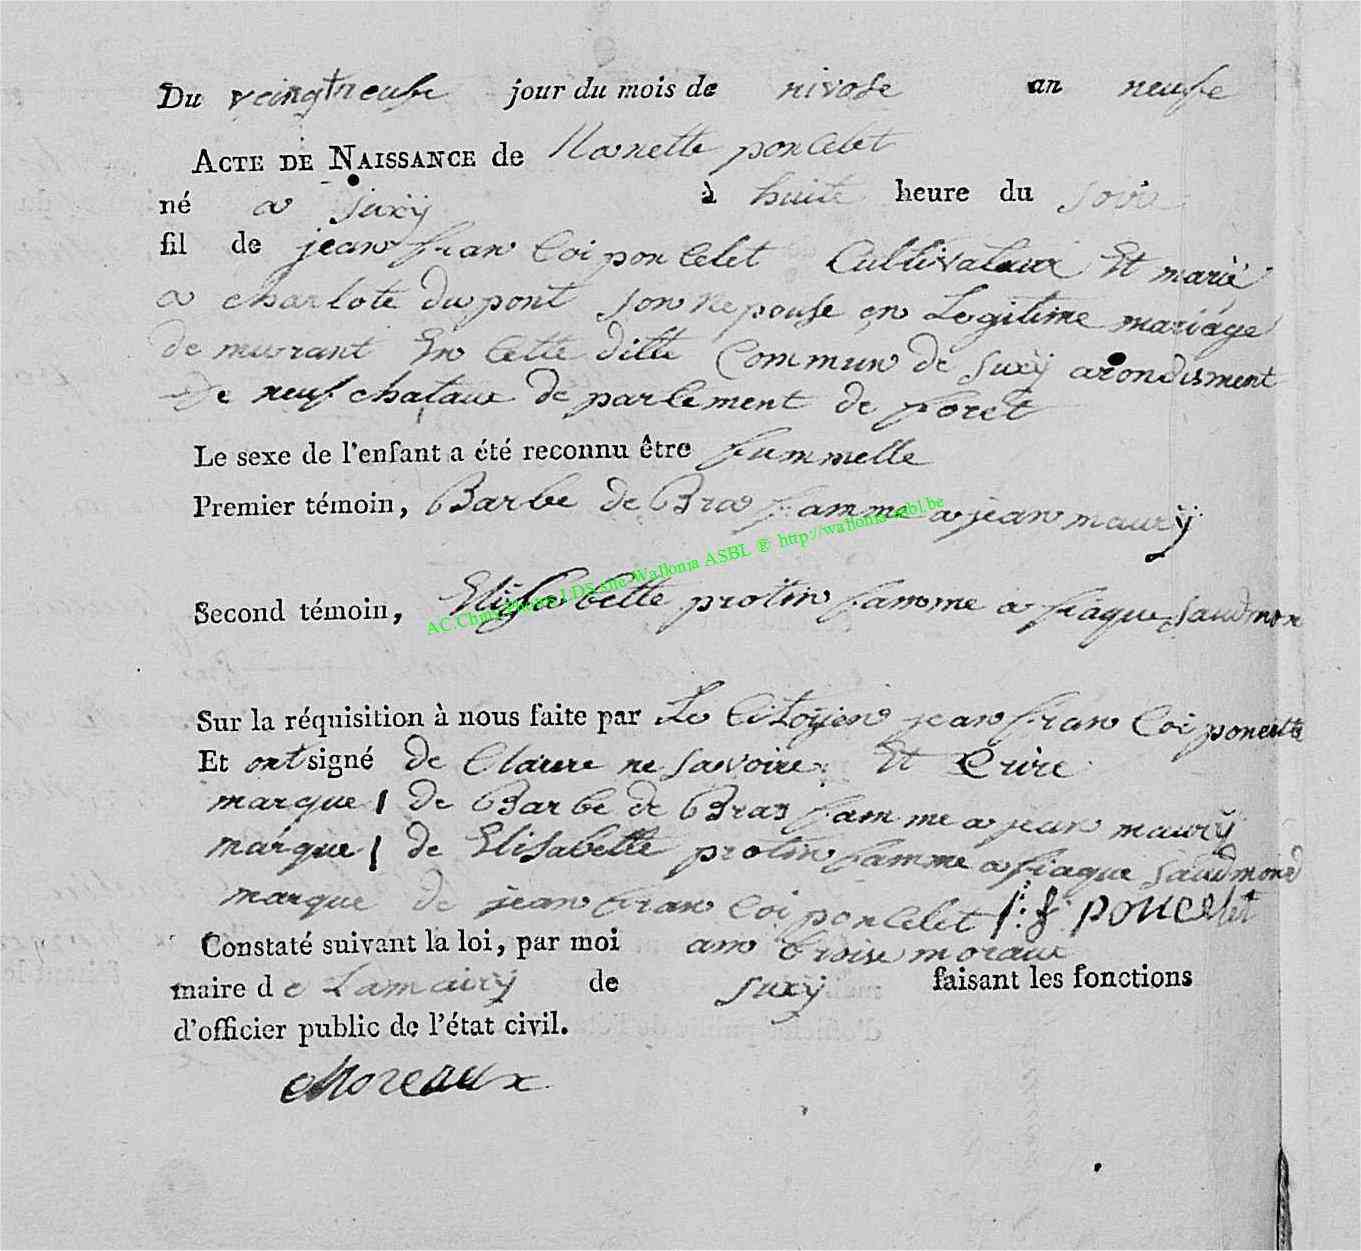 Du veingtneufe jour du mois de nivose an neufe
ACTE DE NAISSANCE de Nanette poncelet
né a Suxÿ à huite heure du soire
fil de jean fran Coi poncelet Cultivateur Et marié
a charlote du pont son Nepouse en Legitime mariage
de murant En Cette ditte Commun de Suxÿ arondisment
de neuf chataux de parlement de foret
Le sexe de l'enfant a été reconnu être fummelle
Premier témoin, Barbe de Bras famme a jean maurÿ
AC.Chiny LDS site Wallonia ASBL @ http://wallonia-asbl.be
Second témoin, Elisabette protin famme a fiaque saudmon
Sur la réquisition à nous faite par Le Citoÿen jean fran Coi poncelet
Et ont signé de Claure ne savoire Et Crire
marque | de Barbe de Bras famme a jean maurÿ
marque | de Elisabette protin famme a fiaque saudmond
marque de jean fran Coi poncelet J: f: poncelet
Constaté suivant la loi, par moi am broise moraux
maire de Lamairÿ de Suxÿ faisant les fonctions
d'officier public de l'état civil.
Moreaux